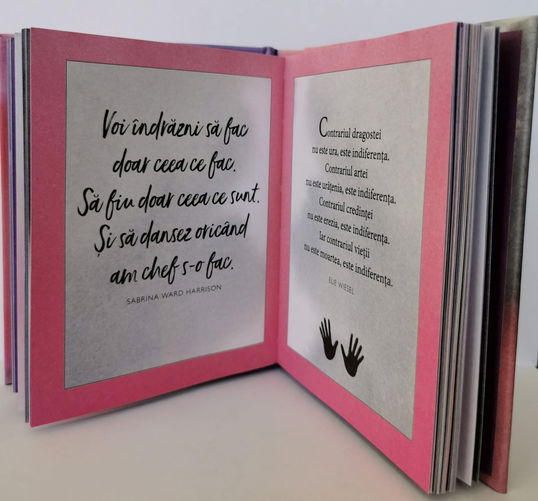 Voi îndrăzni să fac
doar ceea ce fac.
Să fiu doar ceea ce sunt.
Și să dansez oricând
am chef s-o fac.
SABRINA WARD HARRISON
Contrariul dragostei
nu este ura, este indiferența.
Contrariul artei
nu este urâțenia, este indiferența.
Contrariul credinței
nu este erezia, este indiferența.
Iar contrariul vieții
nu este moartea, este indiferența.
ELIE WIESEL